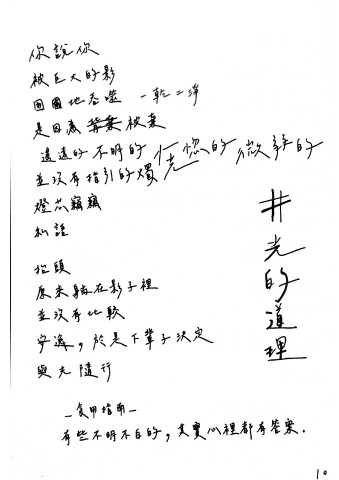 你說你
被巨大的影
囫圇地吞噬 一乾二淨
是因為被棄
遠遠的不明的 恍惚的 微弱的
並沒有指引的燭光
燈芯竊竊
私語
抬頭
原來躺在影子裡
並沒有比較
安逸，於是下輩子決定
與光隨行
井光的道理
—食用指南—
有些不明不白的，其實心裡都有答案.
10